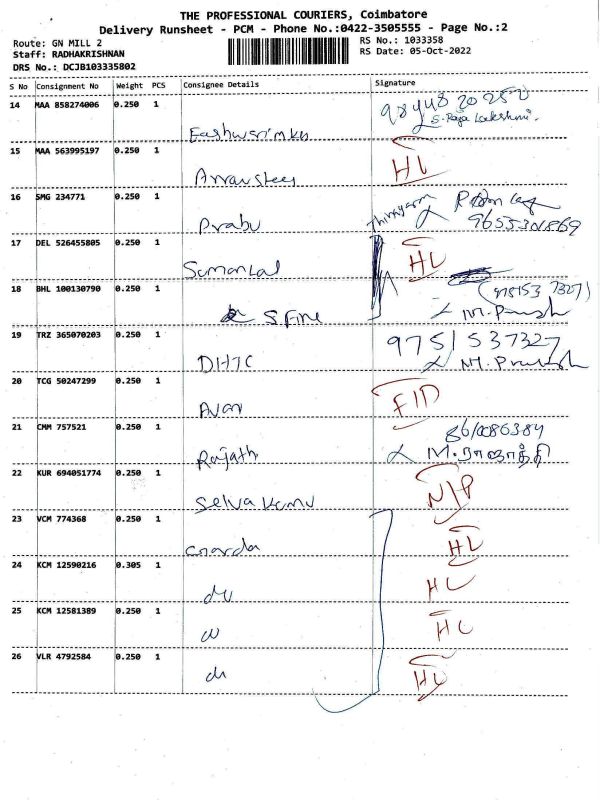 THE PROFESSIONAL COURIERS, Coimbatore
Delivery Runsheet - PCM - Phone No.:0422-3505555 - Page No.:2
Route: GN MILL 2 RS No.: 1033358
Staff: RADHAKRISHNAN RS Date: 05-Oct-2022
DRS No.: DCJB103335802
S No Consignment No Weight PCS Consignee Details Signature
14 MAA 858274006 0.250 1
S. Raja Lakshmi.
15 MAA 563995197 0.250 1
HL
16 SMG 234771 0.250 1
Prabu
17 DEL 526455805 0.250 1
HL
18 BHL 100130790 0.250 1
S Fine
19 TRZ 365070203 0.250 1 9751537327
DHTC M. Prakash
20 TCG 50247299 0.250 1
21 CMM 757521 0.250 1
M. ராஜாத்தி
22 KUR 694051774 0.250 1
Selva kumu N/P
23 VCM 774368 0.250 1
HL
24 KCM 12590216 0.305 1
HL
25 KCM 12581389 0.250 1
HL
26 VLR 4792584 0.250 1
HL